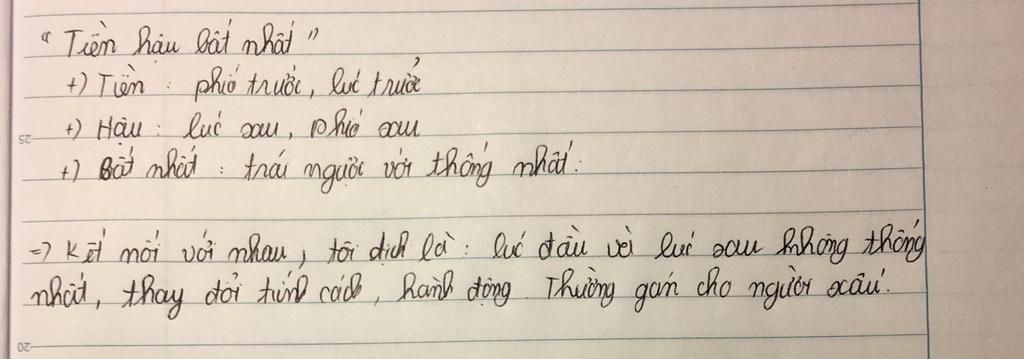 “ Tiền hậu bất nhất ”
+) Tiền : phía trước, lúc trước
+) Hậu : lúc sau, phía sau
+) Bất nhất : trái ngược với thống nhất.
=) Kết nối với nhau, tôi dịch là : lúc đầu và lúc sau không thống
nhất, thay đổi tính cách, hành động. Thường gán cho người xấu.
25
20